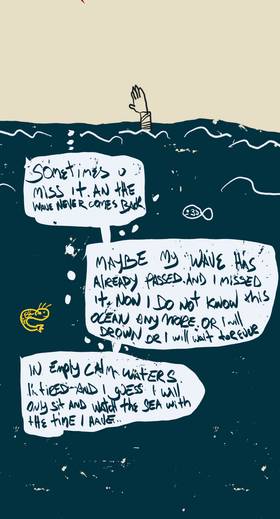 SOMETIMES U
MISS IT. AN THE
WAVE NEVER COMES BACK
MAYBE MY WAVE HAS
ALREADY PASSED. AND I MISSED
IT, NOW I DO NOT KNOW THIS
OCEAN ANY MORE. OR I will
DROWN OR I will WAIT FOREVER
IN EMPLY CALM WATERS.
I'M TIRED - AND I GUESS I WILL
ONLY SIT AND WATCH THE SEA WITH
THE TIME I HAVE..